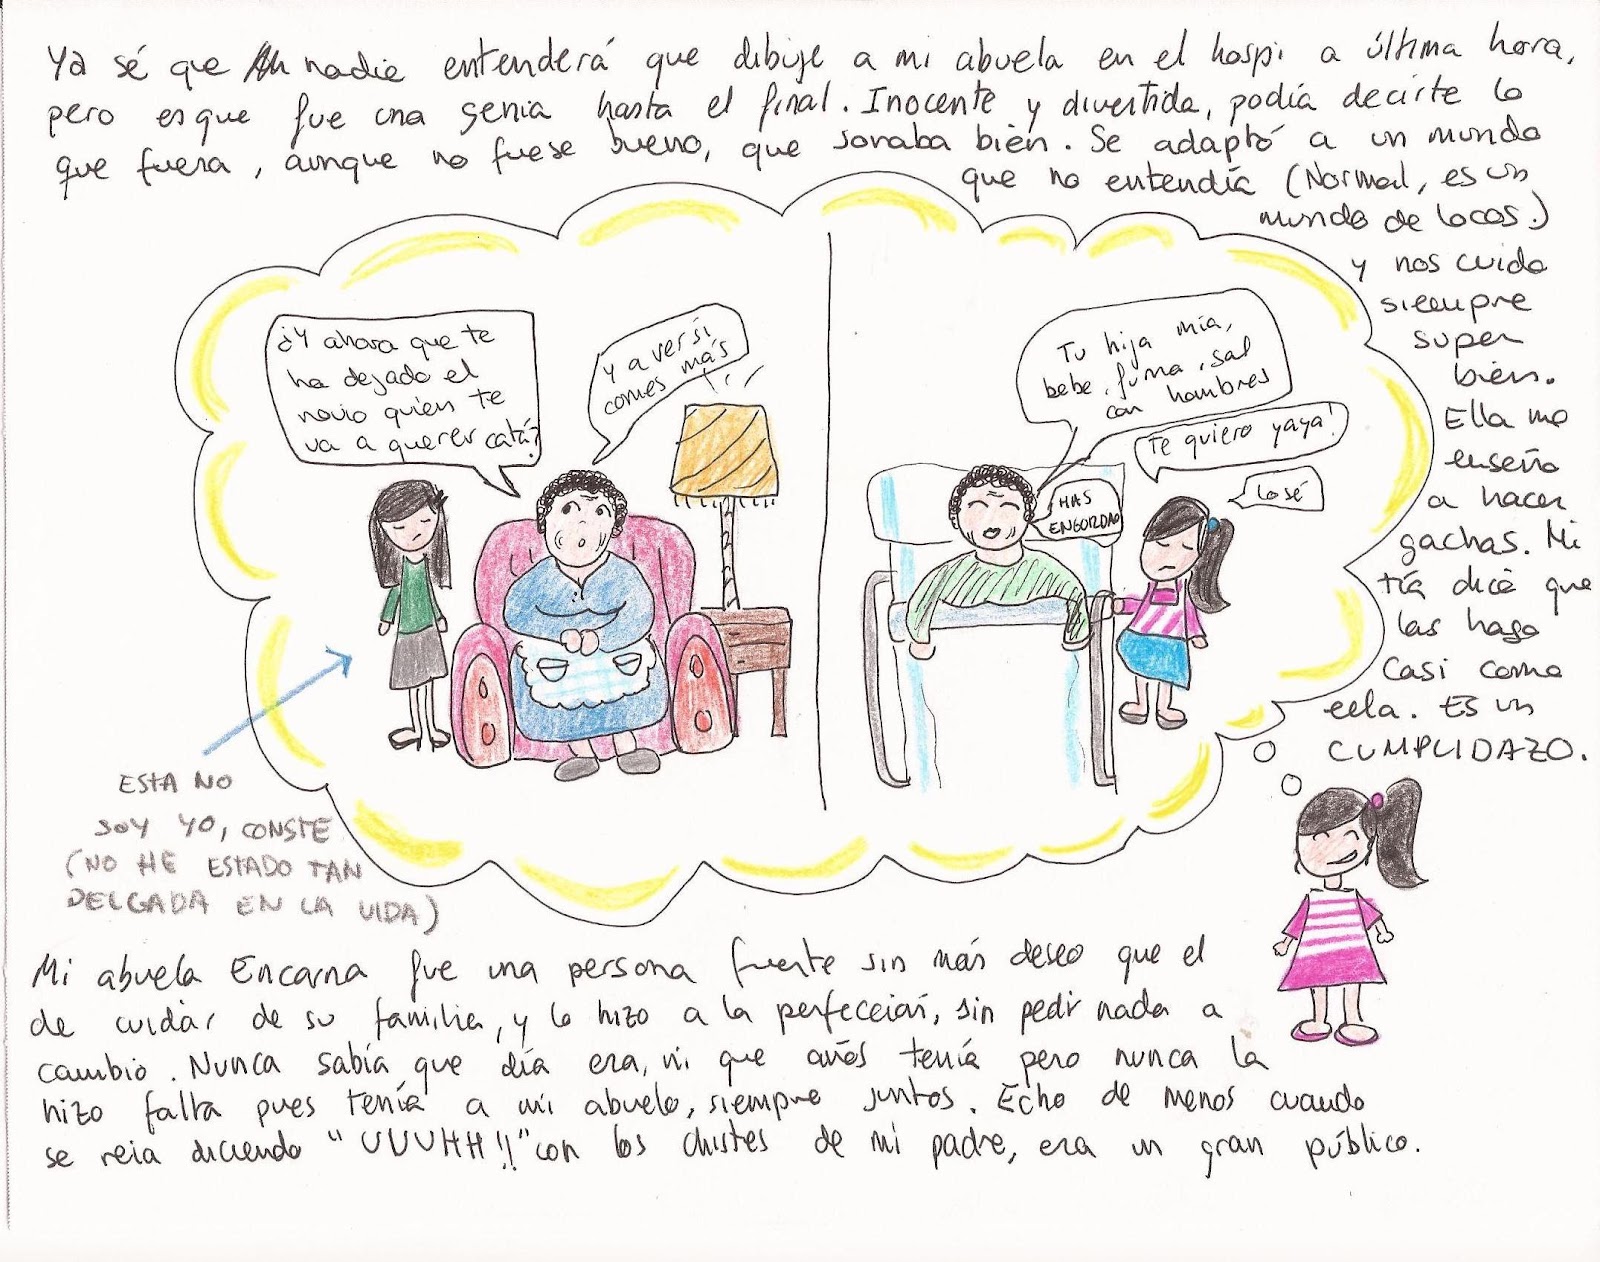 Ya sé que nadie entenderá que dibuje a mi abuela en el hospi a última hora,
pero es que fue una genia hasta el final. Inocente y divertida, podía decirte lo
que fuera, aunque no fuese bueno, que sonaba bien. Se adaptó a un mundo
que no entendía (Normal, es un
mundo de locos.)
y nos cuido
siempre
super
bien.
Ella me
enseño
a hacer
gachas. Mi
tía dice que
las hago
casi como
ella. ES un
CUMPLIDAZO.
¿Y ahora que te
ha dejado el
novio quien te
va a querer catá?
Y a ver si
comes más
Tu hija mía,
bebe, fuma, sal
con hombres
Te quiero yaya!
HAS
ENGORDAO
Lo sé
ESTA NO
SOY YO, CONSTE
(NO HE ESTADO TAN
DELGADA EN LA VIDA)
Mi abuela Encarna fue una persona fuerte sin más deseo que el
de cuidar de su familia, y lo hizo a la perfección, sin pedir nada a
cambio. Nunca sabía que día era, ni que años tenía pero nunca la
hizo falta pues tenía a mi abuelo, siempre juntos. Echo de menos cuando
se reia diciendo "UUUHH!!" con los chistes de mi padre, era un gran público.